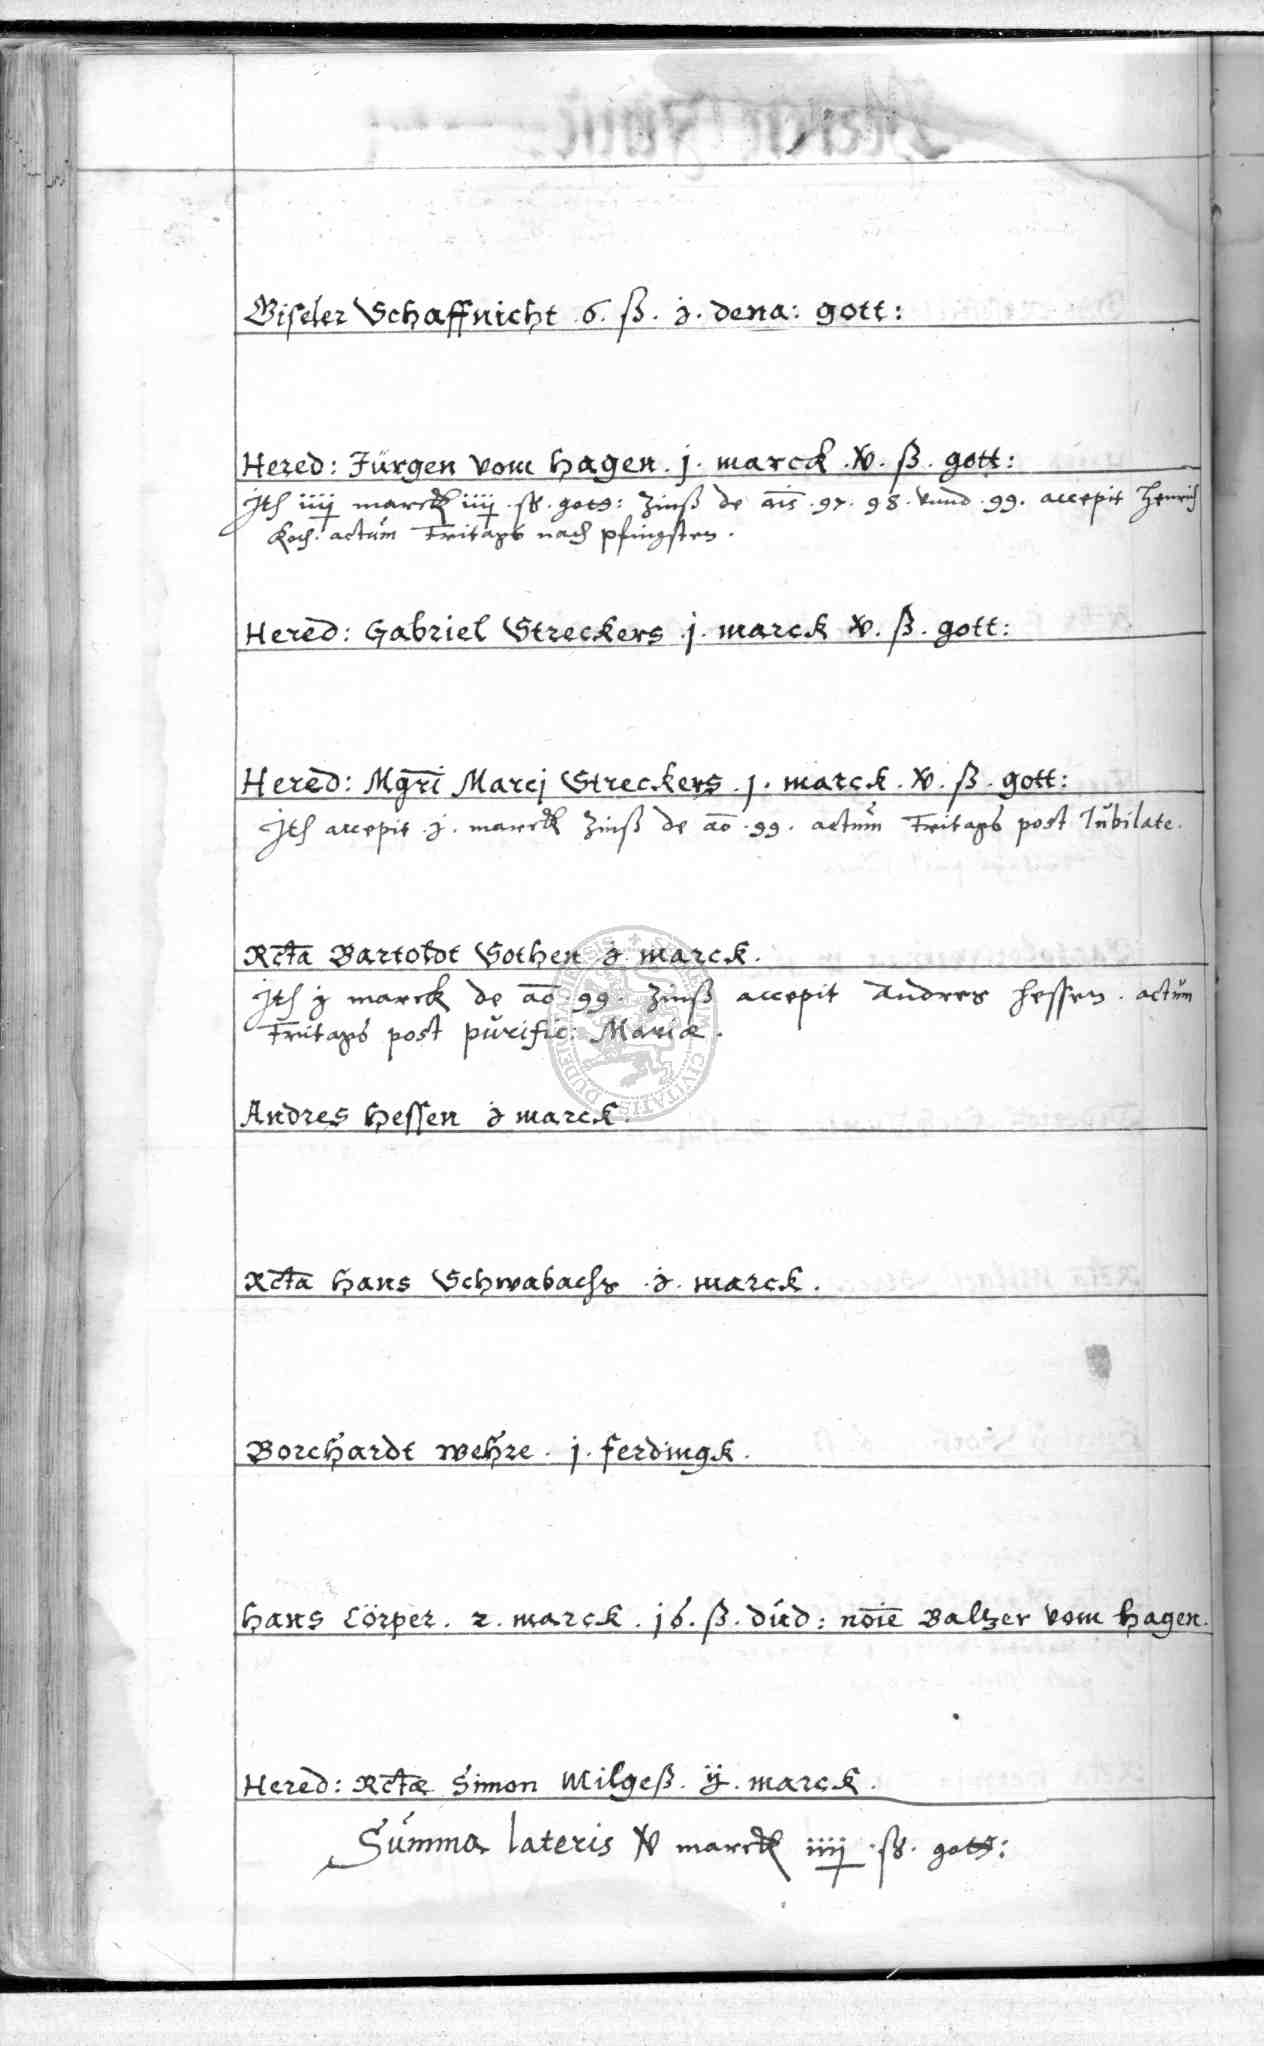 Giseler Schaffnicht .6. ß. j. dena: gott:
Hered: Jürgen vom Hagen . j. marck .v. ß. gott:
Itm iiij marck iiij .ß. gott: Zinß de ais .97. 98. vnnd .99. accepit Henrich
Koch. actum Fritags nach pfingsten.
Hered: Gabriel Streckers .j. marck v. ß. gott:
Hered: Mgri Marcj Streckers .j. marck .v. ß. gott:
Itm accepit .j. marck Zinß de ao .99. actum Fritags post Iubilate.
Rcta Bartoldt Sothen j marck.
Itm j marck de ao .99. Zinß accepit Andres Hessen. actum
Fritags post purific: Mariæ.
Andres Hessen j marck.
Rcta Hans Schwabachs .j. marck.
Borchardt Wehre . j. ferdingk.
Hans Cörper. 2. marck. 16. ß. dud: noie Baltzer vom Hagen.
Hered: Rctæ Simon Milgeß. ij. marck.
Summa lateris v marck iiij .ß. gott:
SIGILLUM CIVITATIS DUDER